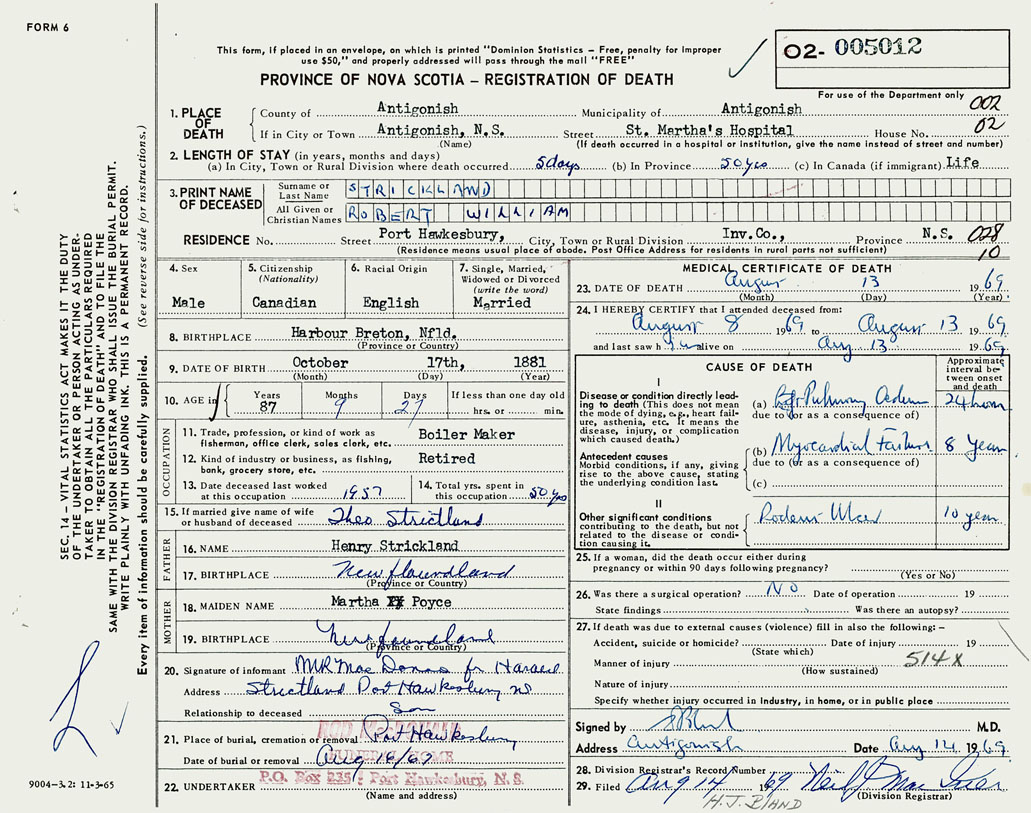 FORM 6
This form, if placed in an envelope, on which is printed "Dominion Statistics – Free, penalty for improper
use $50," and properly addressed will pass through the mail "FREE"
O2- 005012
PROVINCE OF NOVA SCOTIA – REGISTRATION OF DEATH
For use of the Department only
002
02
1. PLACE OF DEATH
County of Antigonish Municipality of Antigonish
If in City or Town Antigonish, N.S. Street St. Martha's Hospital House No.
(Name) (If death occurred in a hospital or institution, give the name instead of street and number)
2. LENGTH OF STAY (in years, months and days)
(a) In City, Town or Rural Division where death occurred 5 days (b) In Province 50 yrs (c) In Canada (if immigrant) Life
3. PRINT NAME OF DECEASED
Surname or Last Name STRICKLAND
All Given or Christian Names ROBERT WILLIAM
RESIDENCE No. Street Port Hawkesbury, City, Town or Rural Division Inv.Co., Province N.S. 028
(Residence means usual place of abode. Post Office Address for residents in rural parts not sufficient) 10
4. Sex
Male
5. Citizenship
(Nationality)
Canadian
6. Racial Origin
English
7. Single, Married, Widowed or Divorced
(write the word)
Married
8. BIRTHPLACE Harbour Breton, Nfld.
(Province or Country)
9. DATE OF BIRTH October 17th, 1881
(Month) (Day) (Year)
10. AGE in Years Months Days If less than one day old
87 9 27 hrs. or min.
OCCUPATION
11. Trade, profession, or kind of work as
fisherman, office clerk, sales clerk, etc. Boiler Maker
12. Kind of industry or business, as fishing,
bank, grocery store, etc. Retired
13. Date deceased last worked
at this occupation 1957
14. Total yrs. spent in
this occupation 50 yrs
15. If married give name of wife
or husband of deceased Theo Strictland
FATHER
16. NAME Henry Strickland
17. BIRTHPLACE Newfloundland
(Province or Country)
MOTHER
18. MAIDEN NAME Martha Poyce
19. BIRTHPLACE Newfoundland
(Province or Country)
20. Signature of informant MR Mac Donna fr Harold
Address Strictland Port Hawkesbury NS
Relationship to deceased Son
21. Place of burial, cremation or removal Port Hawkesbury
Date of burial or removal Aug 16/69
FUNERAL HOME
P.O. Box 235 Port Hawkesbury, N.S.
22. UNDERTAKER
(Name and address)
MEDICAL CERTIFICATE OF DEATH
23. DATE OF DEATH August 13 1969
(Month) (Day) (Year)
24. I HEREBY CERTIFY that I attended deceased from:
August 8 1969 to August 13 1969
and last saw h im alive on Aug 13 1969
CAUSE OF DEATH
Approximate interval between onset and death
I
Disease or condition directly leading
to death (This does not mean
the mode of dying, e.g., heart failure,
asthenia, etc. It means the
disease, injury, or complication
which caused death.)
(a) Pulmonary Oedema 24 hours
due to (or as a consequence of)
Antecedent causes
Morbid conditions, if any, giving
rise to the above cause, stating
the underlying condition last.
(b) Myocardial Failure 8 years
due to (or as a consequence of)
(c)
II
Other significant conditions
contributing to the death, but not
related to the disease or condition
causing it.
Rodent Ulcer 10 years
25. If a woman, did the death occur either during
pregnancy or within 90 days following pregnancy?
(Yes or No)
26. Was there a surgical operation? NO Date of operation 19
State findings Was there an autopsy?
27. If death was due to external causes (violence) fill in also the following: –
Accident, suicide or homicide? Date of injury 19
(State which)
Manner of injury 514X
(How sustained)
Nature of injury
Specify whether injury occurred in Industry, in home, or in public place
Signed by HJBland M.D.
Address Antigonish Date Aug 14 1969
28. Division Registrar's Record Number
29. Filed Aug 14 1969 Neil J Mac
(Division Registrar)
H.J. BLAND
SEC. 14 – VITAL STATISTICS ACT MAKES IT THE DUTY
OF THE UNDERTAKER OR PERSON ACTING AS UNDERTAKER
TO OBTAIN ALL THE PARTICULARS REQUIRED
IN THE "REGISTRATION OF DEATH" AND TO FILE THE
SAME WITH THE DIVISION REGISTRAR WHO SHALL ISSUE THE BURIAL PERMIT.
WRITE PLAINLY WITH UNFADING INK. THIS IS A PERMANENT RECORD.
Every item of information should be carefully supplied. (See reverse side for instructions.)
9004-3.2: 11-3-65